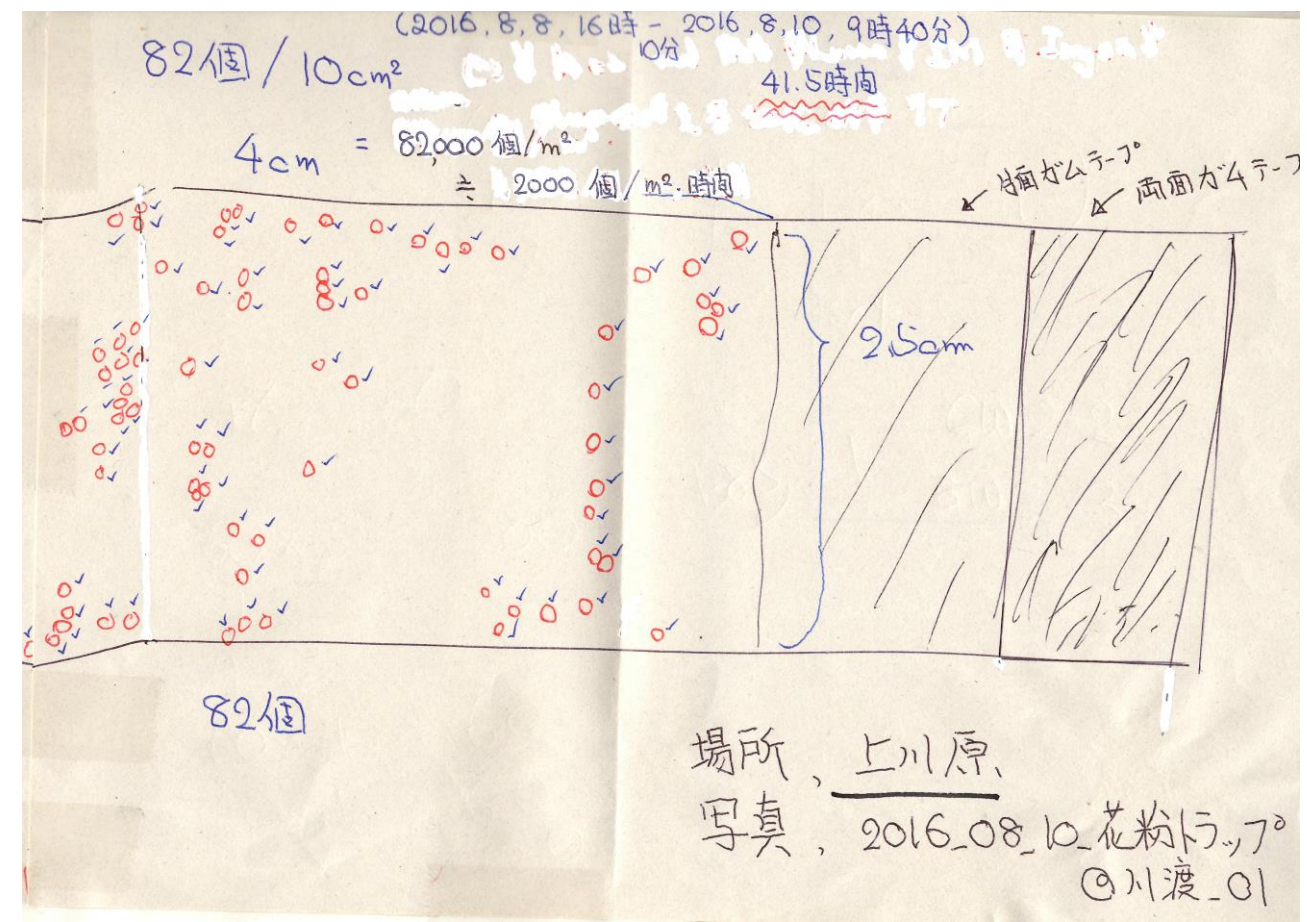 (2016,8,8,16時10分 - 2016,8,10,9時40分)
82個/10cm²
41.5時間
4cm
= 82,000 個/m²
≒ 2000 個/m²・時間
片面ガムテープ
両面ガムテープ
2.5cm
82個
場所、上川原
写真、2016_08_10_花粉トラップ
@川渡_01